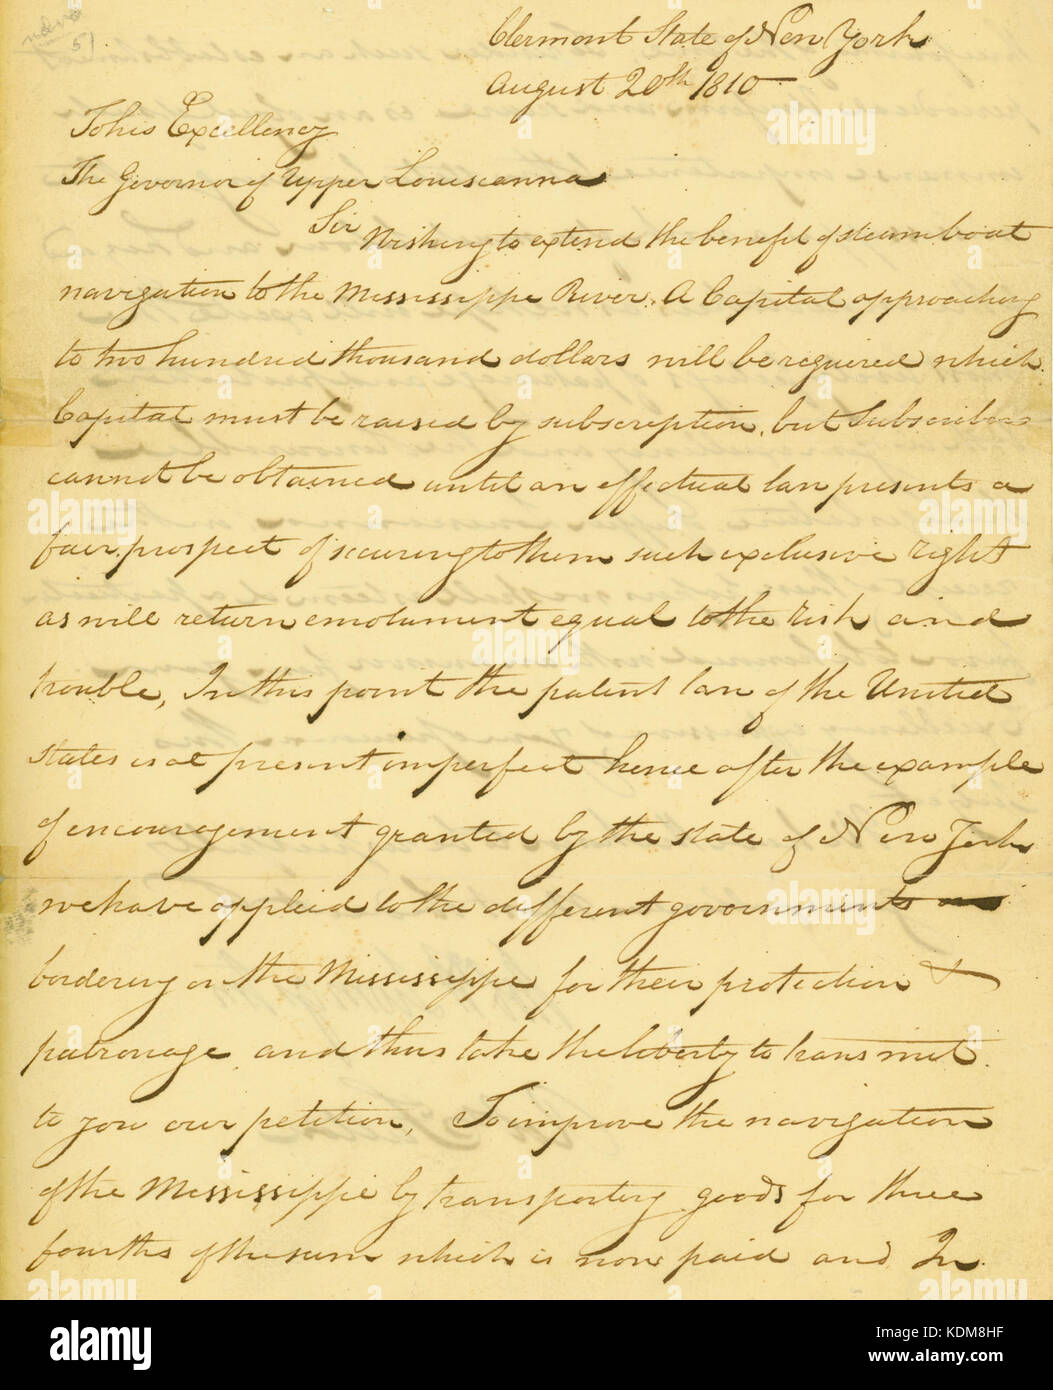 51
Clermont State of New York
August 20th 1810
To his Excellency
The Governor of Upper Louiseanna
Sir Wishing to extend the benefit of steamboat
navigation to the Mississippe River. A Capital approaching
to two hundred thousand dollars will be required which
Capital must be raised by subscription, but Subscribers
cannot be obtained until an effectual law presents a
fair prospect of securing to them such exclusive right
as will return emolument equal to the risk and
trouble, In this point the patent law of the United
States is at present imperfect hence after the example
of encouragement granted by the state of New York
we have applied to the different governments
bordering on the Mississippe for their protection &
patronage and thus take the liberty to transmit
to you our petition, To improve the navigation
of the Mississippe by transporting goods for three
fourths of the sum which is now paid and In
alamy
Image ID: KDM8HF
www.alamy.com